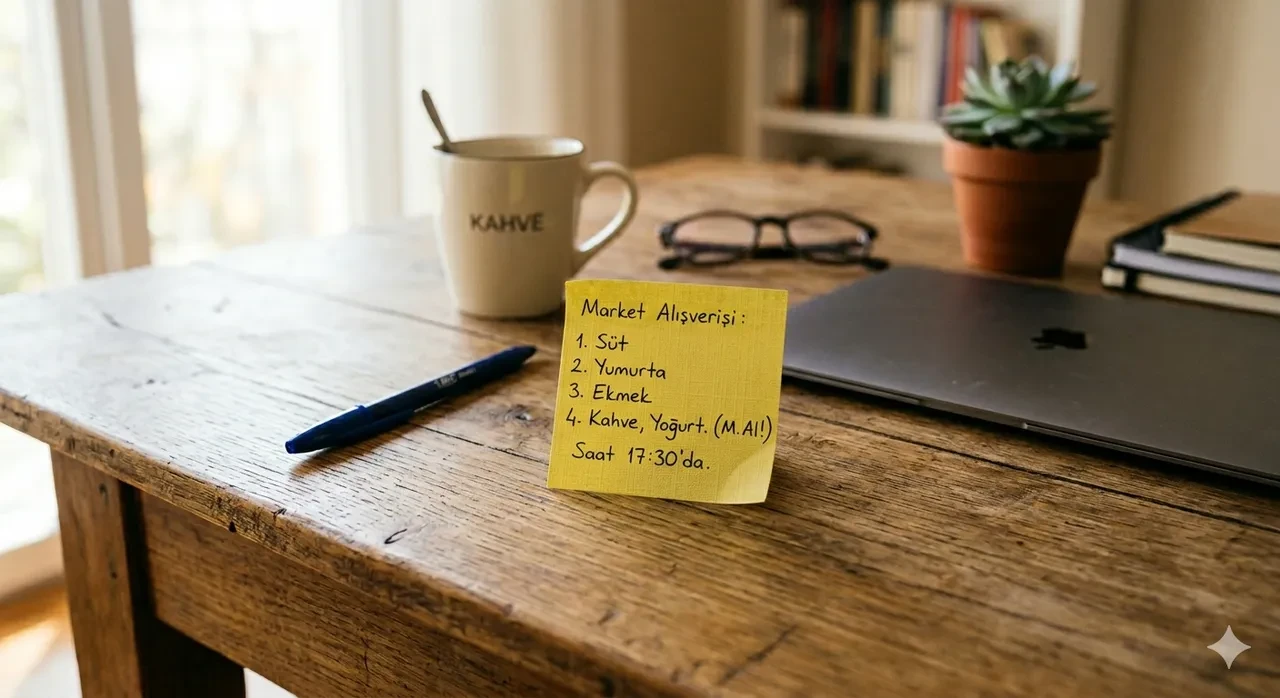 KAHVE
Market Alışverişi:
1. Süt
2. Yumurta
3. Ekmek
4. Kahve, Yoğurt. (M.Al!)
Saat 17:30'da.